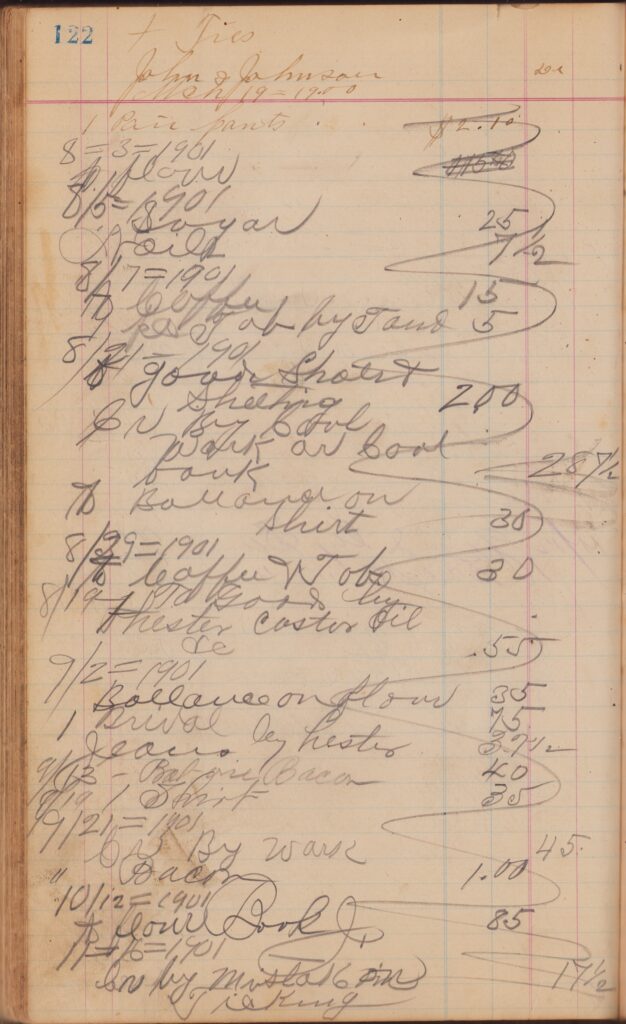 122
+ Ties
John & Johnson
19 = 1900
1 Pair pants $2.10
8 = 3 = 1901
flour
8/5 = 1901
Sugar 25
Oil 7 1/2
8/7 = 1901
To Coffee 15
Tob by Tand 5
8/21 = 1901
To goods Shoes &
Sheeting 200
Cr By Cool
Work on Cool
bank 28 7 1/2
To Ballance on
Shirt 30
8/29 = 1901
To Coffee & Tobo 30
8/19 To Goods by
Chester Castor Oil
&c .55
9/2 = 1901
Ballance on flour 35
1 Bridal 75
Jeans by Chester 37 1/2
9/13 - Bal on Bacon 40
9/19 1 Shirt 35
9/21 = 1901
Cr By Work 45
" Bacon 1.00
10/12 = 1901
flour 85
= 1901
Cr by Mistak in 17 1/2
Ticking